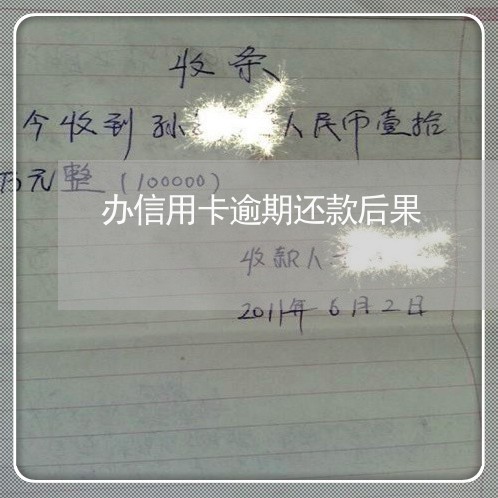 收条
今收到孙 人民币壹拾
万元整（100000）
办信用卡逾期还款后果
收款人
2011年6月2日